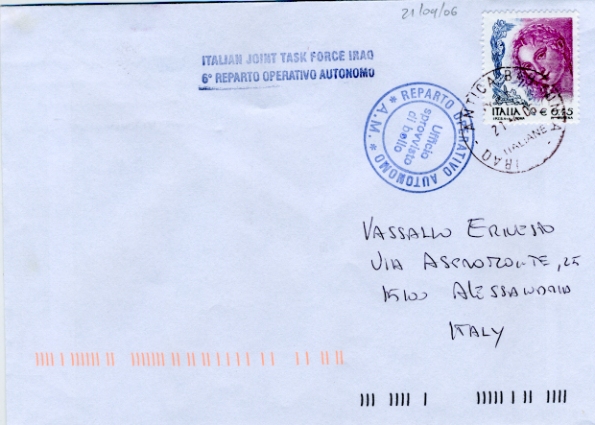 21/04/06
ITALIAN JOINT TASK FORCE IRAQ
6° REPARTO OPERATIVO AUTONOMO
* REPARTO OPERATIVO AUTONOMO * A.M.
Ufficio
sprovvisto
di bollo
ITALIA € 0,45
IRAQ
ITALIANE
VASSALLO ERNESTO
VIA ASPROMONTE, 25
15100 ALESSANDRIA
ITALY